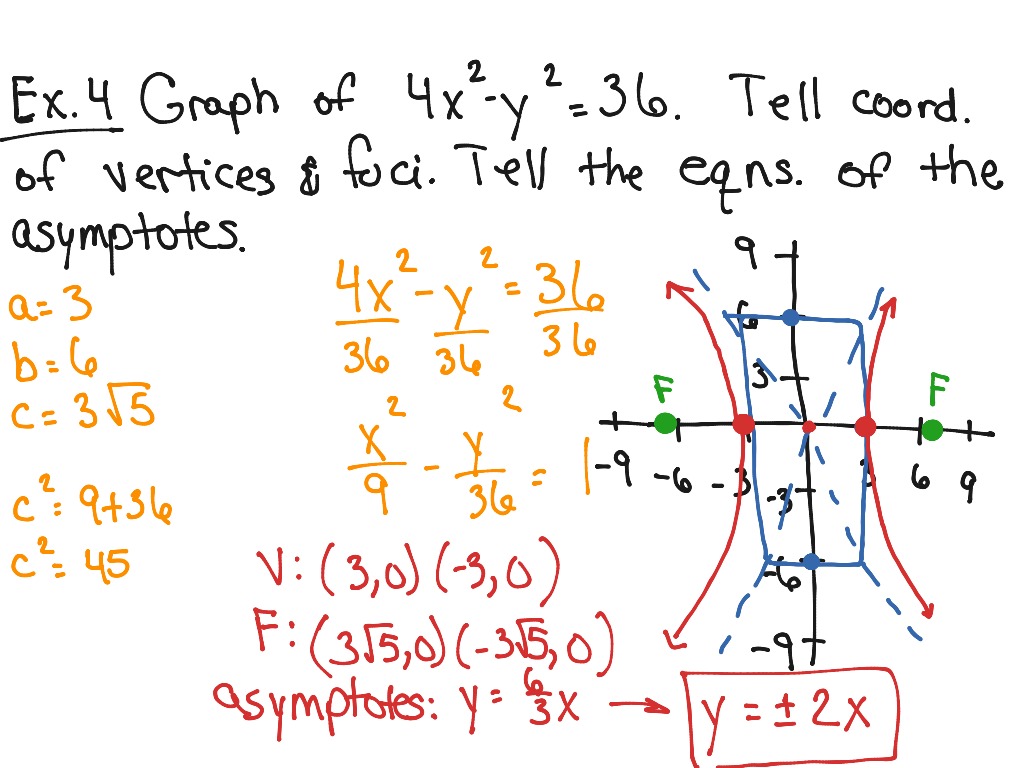 Ex. 4 Graph of 4x² - y² = 36. Tell coord.
of vertices & foci. Tell the eqns. of the
asymptotes.
a = 3
b = 6
c = 3√5
c² = 9+36
c² = 45
4x²/36 - y²/36 = 36/36
x²/9 - y²/36 = 1
V: (3,0) (-3,0)
F: (3√5,0) (-3√5,0)
asymptotes: y = 6/3 x → y = ± 2x
9
6
3
F F
-9 -6 -3 3 6 9
-3
-6
-9